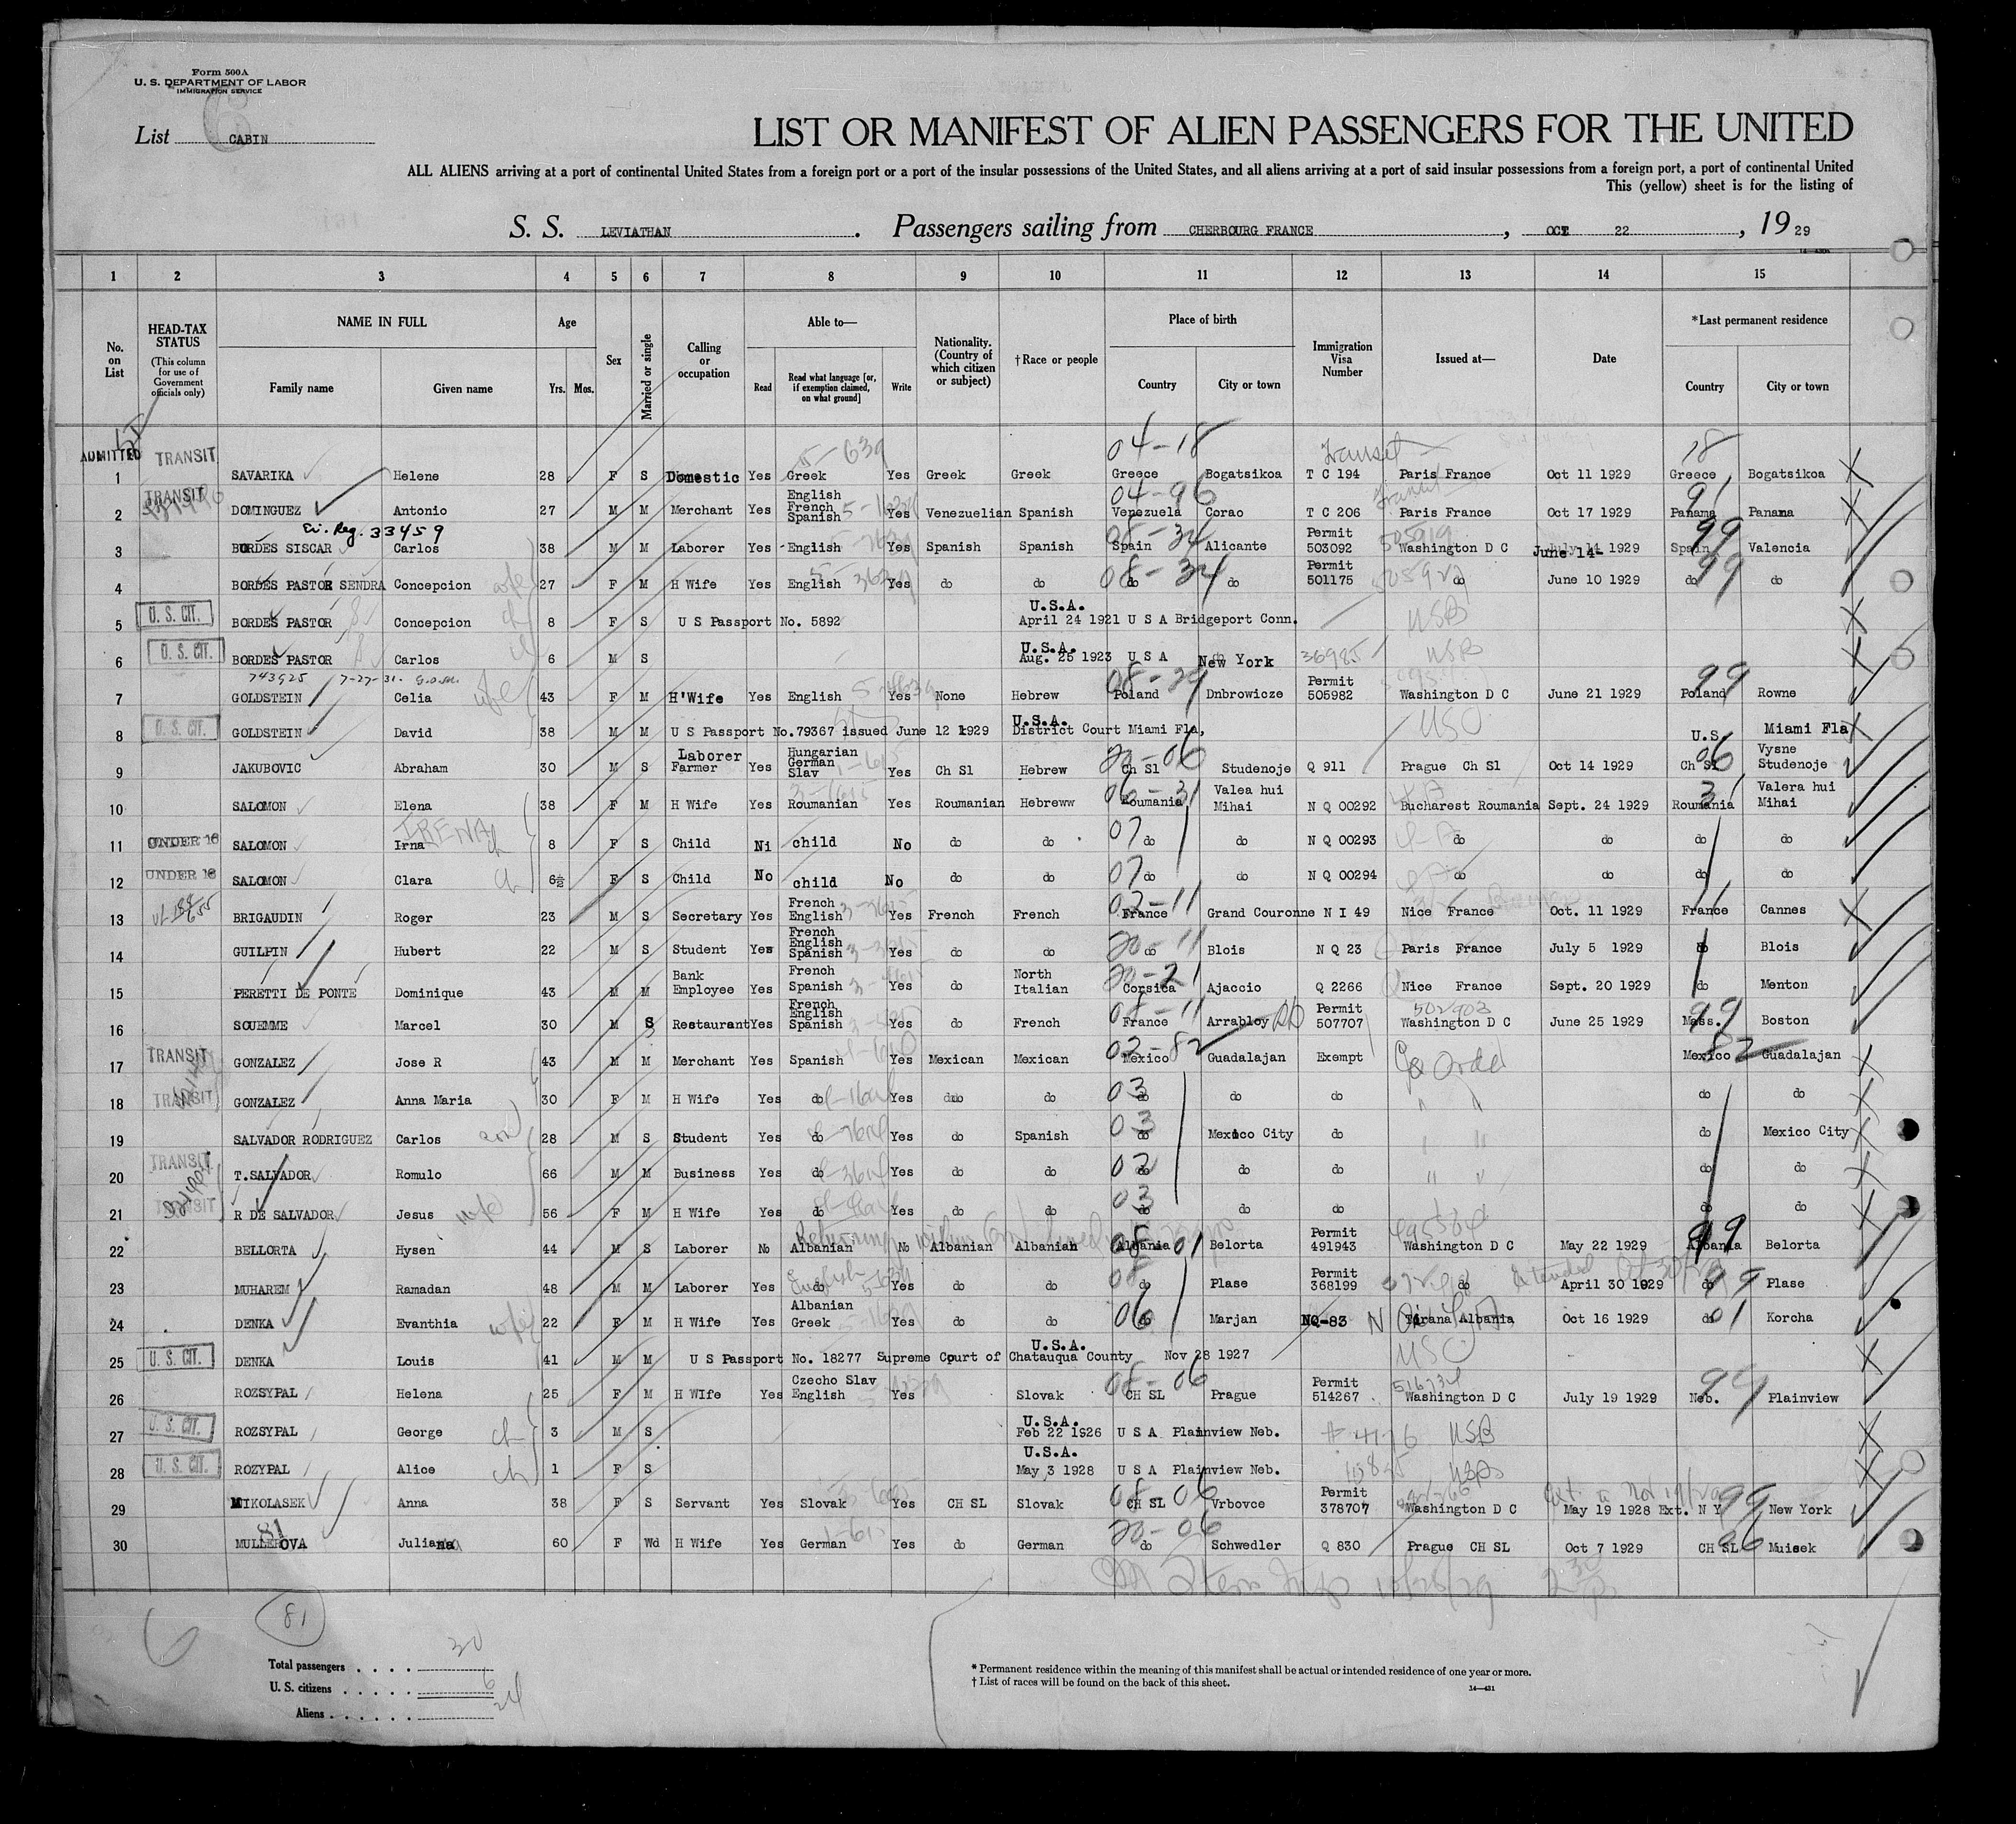 Form 500A
U. S. DEPARTMENT OF LABOR
IMMIGRATION SERVICE
List CABIN
LIST OR MANIFEST OF ALIEN PASSENGERS FOR THE UNITED
ALL ALIENS arriving at a port of continental United States from a foreign port or a port of the insular possessions of the United States, and all aliens arriving at a port of said insular possessions from a foreign port, a port of continental United
This (yellow) sheet is for the listing of
S. S. LEVIATHAN. Passengers sailing from CHERBOURG FRANCE, OCT 22, 1929
1 2 3 4 5 6 7 8 9 10 11 12 13 14 15
No. on List
HEAD-TAX STATUS (This column for use of Government officials only)
NAME IN FULL Family name Given name
Age Yrs. Mos.
Sex
Married or single
Calling or occupation
Able to— Read Read what language [or, if exemption claimed, on what ground] Write
Nationality. (Country of which citizen or subject)
†Race or people
Place of birth Country City or town
Immigration Visa Number
Issued at—
Date
*Last permanent residence Country City or town
ADMITTED
1 TRANSIT SAVARIKA Helene 28 F S Domestic Yes Greek Yes Greek Greek 04-18 Greece Bogatsikoa T C 194 Transit Paris France Oct 11 1929 18 Greece Bogatsikoa
2 TRANSIT DOMINGUEZ Antonio 27 M M Merchant Yes English French Spanish Yes Venezuelian Spanish 04-96 Venezuela Corao T C 206 Transit Paris France Oct 17 1929 Panama Panama
Ev. Reg. 33459
3 BORDES SISCAR Carlos 38 M M Laborer Yes English Yes Spanish Spanish 08-34 Spain Alicante Permit 503092 Washington D C June 14- 1929 99 Spain Valencia
4 BORDES PASTOR SENDRA Concepcion wife 27 F M H Wife Yes English Yes do do 08-34 do do Permit 501175 do June 10 1929 99 do do
5 U. S. CIT. BORDES PASTOR Concepcion ch 8 F S U S Passport No. 5892 U.S.A. April 24 1921 U S A Bridgeport Conn. USB
6 U. S. CIT. BORDES PASTOR Carlos ch 6 M S U.S.A. Aug. 25 1923 U S A New York 36985 USB
743925 7-27-31.
7 GOLDSTEIN Celia wife 43 F M H'Wife Yes English Yes None Hebrew 08-29 Poland Dnbrowicze Permit 505982 Washington D C June 21 1929 99 Poland Rowne
8 U. S. CIT. GOLDSTEIN David 38 M M U S Passport No.79367 issued June 12 1929 U.S.A. District Court Miami Fla, USO U.S. Miami Fla
9 JAKUBOVIC Abraham 30 M S Laborer Farmer Yes Hungarian German Slav Yes Ch Sl Hebrew 20-06 Ch Sl Studenoje Q 911 Prague Ch Sl Oct 14 1929 06 Ch Sl Vysne Studenoje
10 SALOMON Elena 38 F M H Wife Yes Roumanian Yes Roumanian Hebreww 06-31 Roumania Valea hui Mihai N Q 00292 Bucharest Roumania Sept. 24 1929 31 Roumania Valera hui Mihai
11 UNDER 16 SALOMON IRENA Irna ch 8 F S Child Ni child No do do 07 do do N Q 00293 do do do do
12 UNDER 16 SALOMON Clara ch 6½ F S Child No child No do do 07 do do N Q 00294 do do do do
13 BRIGAUDIN Roger 23 M S Secretary Yes French English Yes French French 02-11 France Grand Couronne N I 49 Nice France Oct. 11 1929 11 France Cannes
14 GUILPIN Hubert 22 M S Student Yes French English Spanish Yes do do 20-11 do Blois N Q 23 Paris France July 5 1929 do Blois
15 PERETTI DE PONTE Dominique 43 M M Bank Employee Yes French Spanish Yes do North Italian 20-21 Corsica Ajaccio Q 2266 Nice France Sept. 20 1929 do Menton
16 SOUEMME Marcel 30 M S Restaurant Yes French English Spanish Yes do French 08-11 France Arrabloy Permit 507707 502903 Washington D C June 25 1929 99 Mass. Boston
17 TRANSIT GONZALEZ Jose R 43 M M Merchant Yes Spanish Yes Mexican Mexican 02-82 Mexico Guadalajan Exempt Ex Order 82 Mexico Guadalajan
18 TRANSIT GONZALEZ Anna Maria 30 F M H Wife Yes do Yes do do 03 do do do " " do do
19 SALVADOR RODRIGUEZ Carlos son 28 M S Student Yes do Yes do Spanish 03 do Mexico City do " " do Mexico City
20 TRANSIT T.SALVADOR Romulo 66 M M Business Yes do Yes do do 02 do do do " " do do
21 TRANSIT R DE SALVADOR Jesus wife 56 F M H Wife Yes do Yes do do 03 do do do do do
22 BELLORTA Hysen 44 M S Laborer No Albanian No Albanian Albanian 08-01 Albania Belorta Permit 491943 Washington D C May 22 1929 99 Albania Belorta
23 MUHAREM Ramadan 48 M M Laborer Yes English do Yes do do 08 do Plase Permit 368199 do April 30 1929 99 do Plase
24 DENKA Evanthia wife 22 F M H Wife Yes Albanian Greek Yes do do 06 do Marjan NQ-83 Tirana Albania Oct 16 1929 do 01 Korcha
25 U. S. CIT. DENKA Louis 41 M M U S Passport No. 18277 Supreme Court of U.S.A. Chatauqua County Nov 28 1927 USO
26 ROZSYPAL Helena 25 F M H WIfe Yes Czecho Slav English Yes Slovak 08-06 CH SL Prague Permit 514267 516734 Washington D C July 19 1929 Neb. Plainview
27 U. S. CIT. ROZSYPAL George ch 3 M S U.S.A. Feb 22 1926 U S A Plainview Neb. USB
28 U. S. CIT. ROZYPAL Alice ch 1 F S U.S.A. May 3 1928 U S A Plainview Neb. USB
29 MIKOLASEK Anna 38 F S Servant Yes Slovak Yes CH SL Slovak 08-06 CH SL Vrbovce Permit 378707 Washington D C May 19 1928 Ext. N Y 99 New York
30 81 MULLEROVA Juliana 60 F Wd H Wife Yes German Yes do German 20-06 do Schwedler Q 830 Prague CH SL Oct 7 1929 06 CH SL Muisek
10/28/29
6
81
Total passengers . . . . 30
U. S. citizens . . . . . 6
Aliens . . . . . . 24
* Permanent residence within the meaning of this manifest shall be actual or intended residence of one year or more.
† List of races will be found on the back of this sheet.
14—431